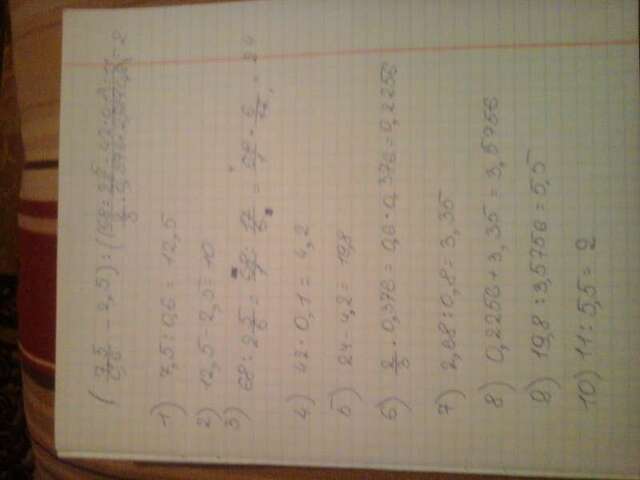 (7,5/0,6 - 2,5) : ((68 : 2 5/6 = 2
1) 7,5 : 0,6 = 12,5
2) 12,5 - 2,5 = 10
3) 68 : 2 5/6 = 68 : 17/6 = 68 · 6/17 = 24
4) 42 · 0,1 = 4,2
5) 24 - 4,2 = 19,8
6) 3/5 · 0,376 = 0,6 · 0,376 = 0,2256
7) 2,68 : 0,8 = 3,35
8) 0,2256 + 3,35 = 3,5756
9) 19,8 : 3,5756 = 5,5
10) 11 : 5,5 = 2